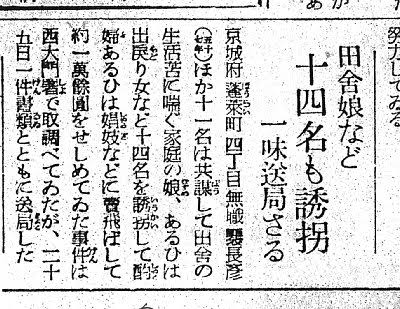 発力してゐる
田舎娘など
十四名も誘拐
一味送局さる
京城府蓬莱町四丁目無職裵長彦
ほか十一名は共謀して田舎の
生活苦に喘ぐ家庭の娘、あるひは
出戻り女など十四名を誘拐して酌
婦あるひは娼妓などに賣飛ばして
約一萬餘圓をせしめてゐた事件は
西大門署で取調べてゐたが、二十
五日一件書類とともに送局した